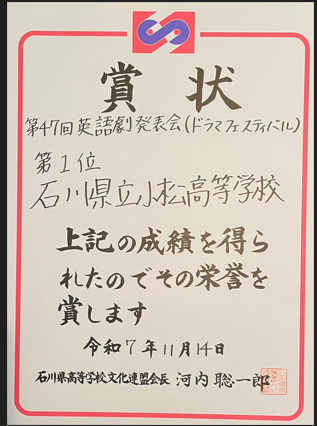 賞状
第47回英語劇発表会(ドラマフェスティバル)
第1位
石川県立小松高等学校
上記の成績を得ら
れたのでその栄誉を
賞します
令和7年11月14日
石川県高等学校文化連盟会長 河内聡一郎